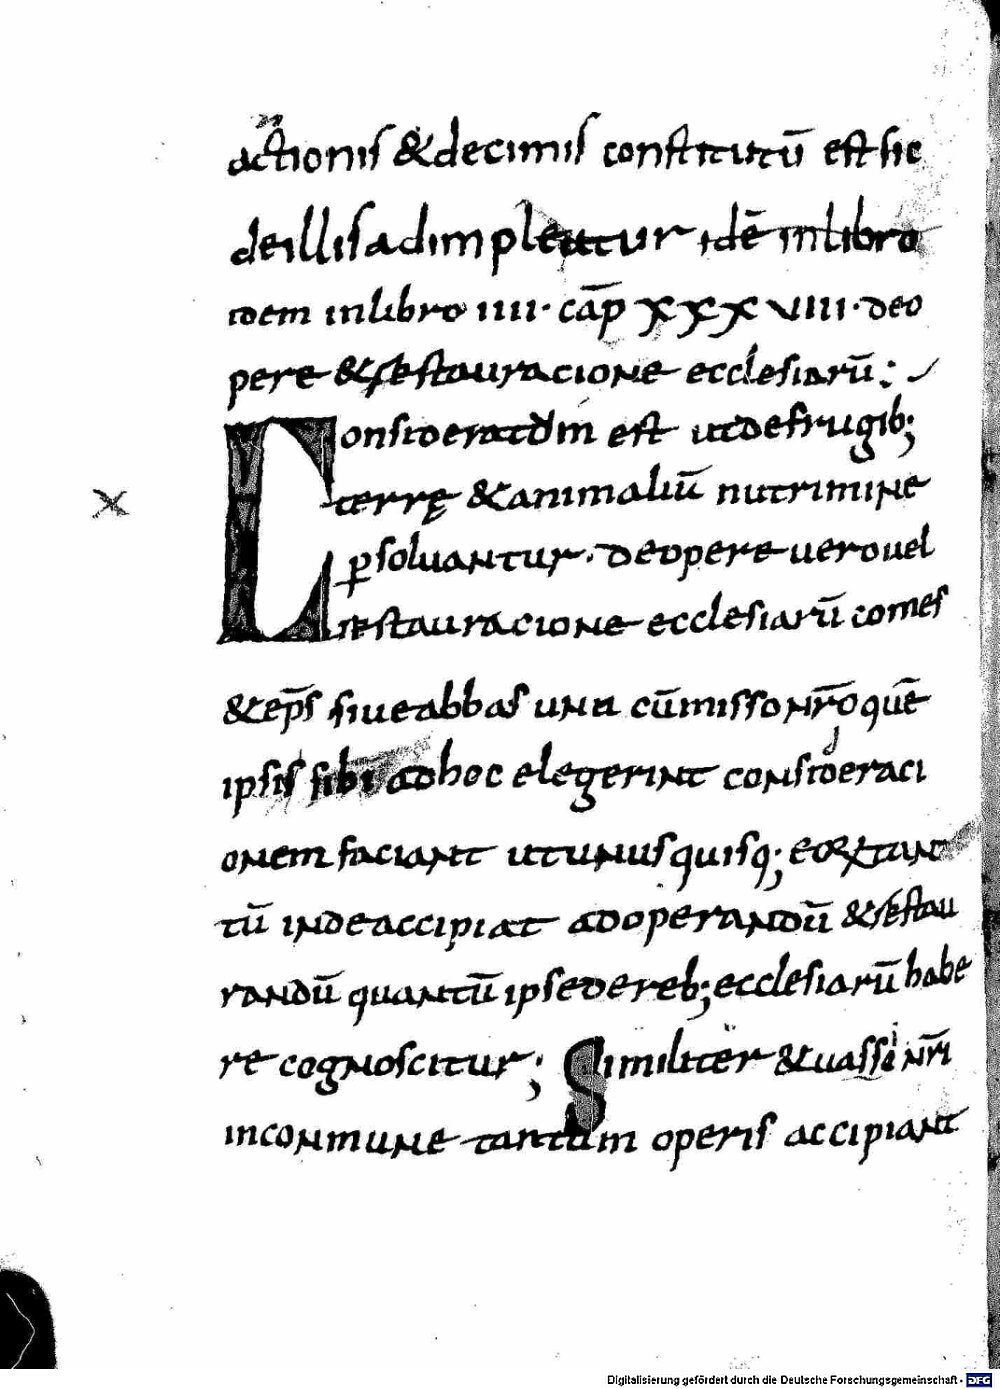 actionis & decimis constitutū est sic
deillis adimpleatur idē inlibro
idem inlibro IIII· cāp XXXVIIII· deo
pere & restauracione ecclesiarū:
Consideratum est utdefrugib;
terrę & animaliū nutrimine
persoluantur· deopere uerouel
restauracione ecclesiarū comes
& ep̄s siueabbas una cū misso nr̄o quē
ipsis sibi adhoc elegerint consideraci
onem faciant utunusquisq; eorum tan
tū indeaccipiat adoperandū & restau
randū quantū ipsedereb; ecclesiarū habe
re cognoscitur; Similiter & uassi nr̄i
incommune tantum operis accipiant
Digitalisierung gefördert durch die Deutsche Forschungsgemeinschaft - DFG